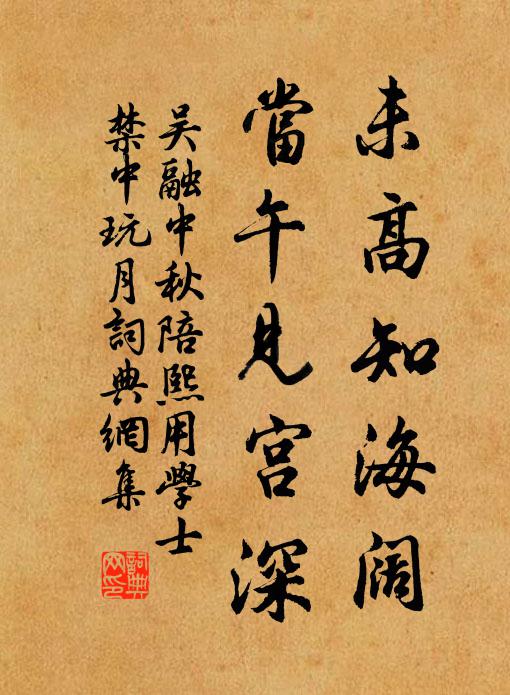 未高知海阔
當午見宫深
吴融中秋陪熙用學士
禁中玩月詞典網集
詞典網印